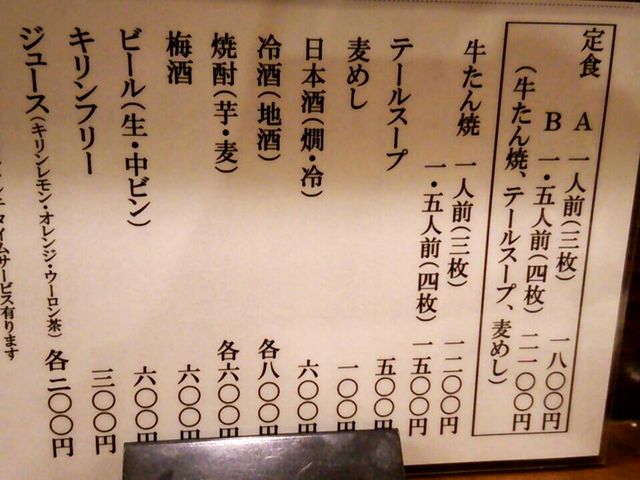 定食　A　一人前（三枚）　一八〇〇円
B　一・五人前（四枚）　二一〇〇円
（牛たん焼、テールスープ、麦めし）
牛たん焼　一人前（三枚）　一二〇〇円
一・五人前（四枚）　一五〇〇円
テールスープ　五〇〇円
麦めし　一〇〇円
日本酒（燗・冷）　六〇〇円
冷酒（地酒）　各八〇〇円
焼酎（芋・麦）　各六〇〇円
梅酒　六〇〇円
ビール（生・中ビン）　六〇〇円
キリンフリー　三〇〇円
ジュース（キリンレモン・オレンジ・ウーロン茶）　各二〇〇円
タイムサービス有ります